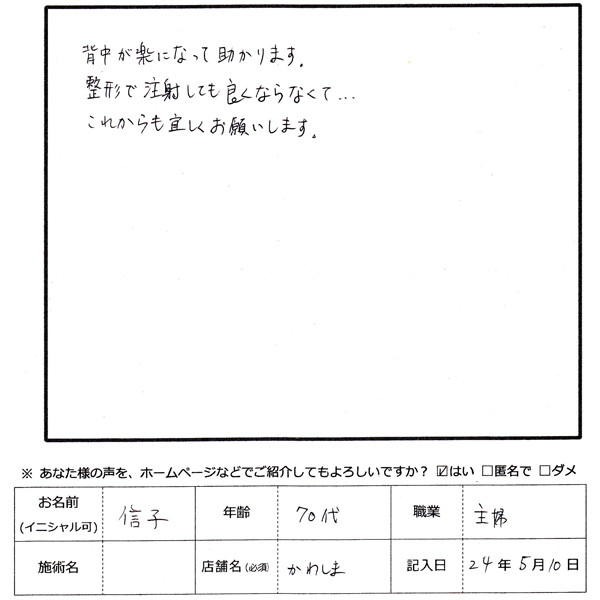 背中が楽になって助かります。
整形で注射しても良くならなくて…
これからも宜しくお願いします。
※ あなた様の声を、ホームページなどでご紹介してもよろしいですか？ ☑はい □匿名で □ダメ
お名前 (イニシャル可) 信子 年齢 70代 職業 主婦
施術名 店舗名(必須) かわしま 記入日 24年5月10日